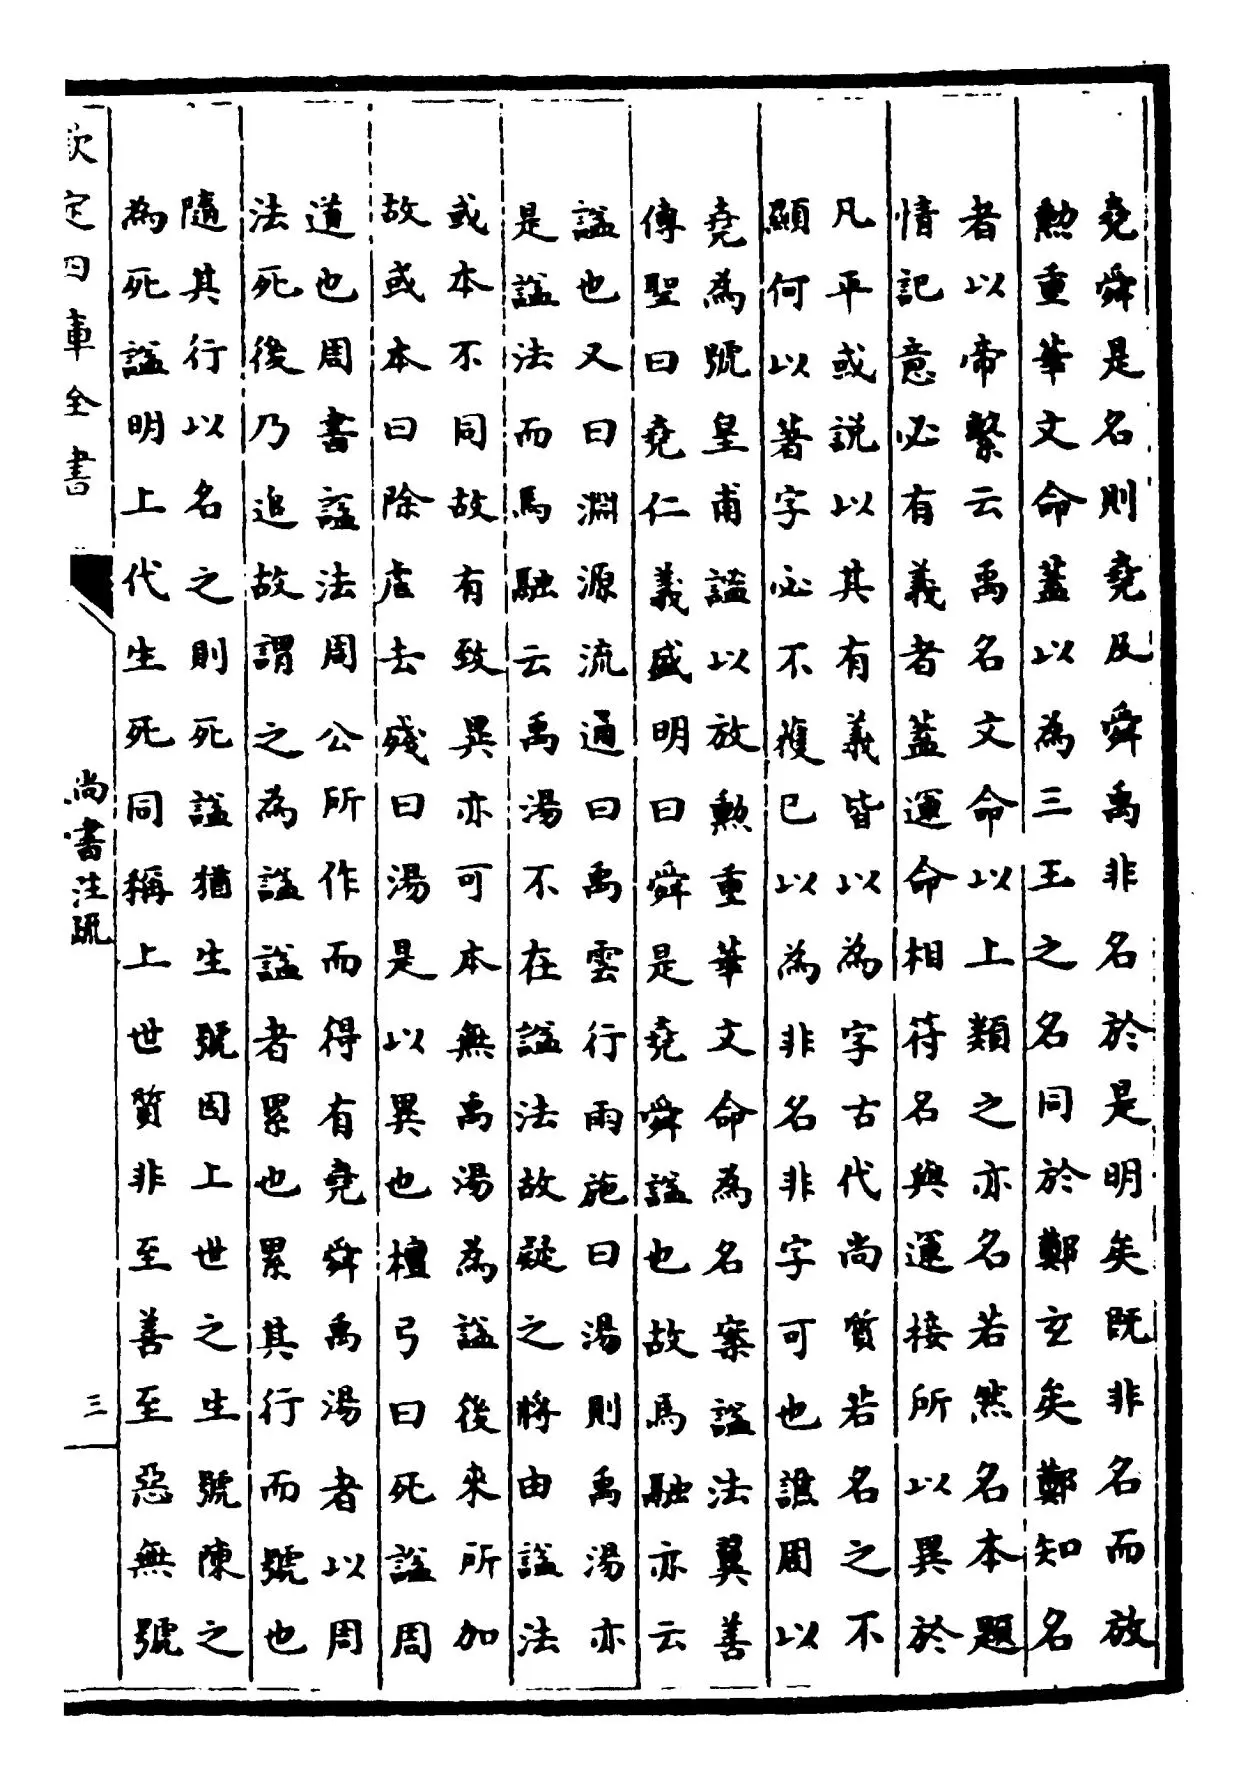 堯舜是名則堯及舜禹非名於是明矣既非名而放
勲重華文命蓋以為三王之名同於鄭玄矣鄭知名
者以帝繫云禹名文命以上類之亦名若然名本題
情記意必有義者蓋運命相符名與運接所以異於
凡平或說以其有義皆以為字古代尚質若名之不
顯何以著字必不獲已以為非名非字可也譙周以
堯為號皇甫謐以放勲重華文命為名案諡法翼善
傳聖曰堯仁義盛明曰舜是堯舜諡也故馬融亦云
諡也又曰淵源流通曰禹雲行雨施曰湯則禹湯亦
是諡法而馬融云禹湯不在諡法故疑之將由諡法
或本不同故有致異亦可本無禹湯為諡後來所加
故或本曰除虐去殘曰湯是以異也檀弓曰死諡周
道也周書諡法周公所作而得有堯舜禹湯者以周
法死後乃追故謂之為諡諡者累也累其行而號也
隨其行以名之則死諡猶生號因上世之生號陳之
為死諡明上代生死同稱上世質非至善至惡無號
欽定四庫全書
尚書注疏
三